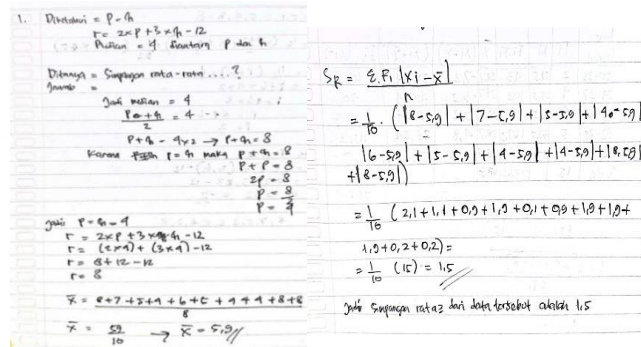 1. Diketahui = P = h
r = 2xP + 3xh - 12
Median = 4 diantara P dan h
Ditanya = Simpangan rata-rata ....?
Jawab =
Jadi median = 4
P + h / 2 = 4
P + h = 4x2 → P + h = 8
Karena P = h maka P + h = 8
P + P = 8
2P = 8
P = 8/2
P = 4
Jadi P = h = 4
r = 2xP + 3xh - 12
r = (2x4) + (3x4) - 12
r = 8 + 12 - 12
r = 8
x̄ = 8+7+5+4+6+5+4+4+8+8 / 8
x̄ = 59/10 → x̄ = 5,9 //
SR = Σ Fi |xi - x̄| / n
= 1/10 . (|8-5,9| + |7-5,9| + |5-5,9| + |4-5,9|
|6-5,9| + |5-5,9| + |4-5,9| + |4-5,9| + |8-5,9|
+ |8-5,9|)
= 1/10 (2,1 + 1,1 + 0,9 + 1,9 + 0,1 + 0,9 + 1,9 + 1,9 +
1,9 + 0,2 + 0,2) =
= 1/10 (15) = 1,5 //
Jadi Simpangan rata2 dari data tersebut adalah 1,5